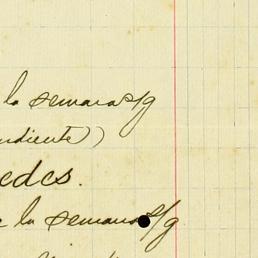 la semana s/g
ndiente)
edes.
la semana s/g